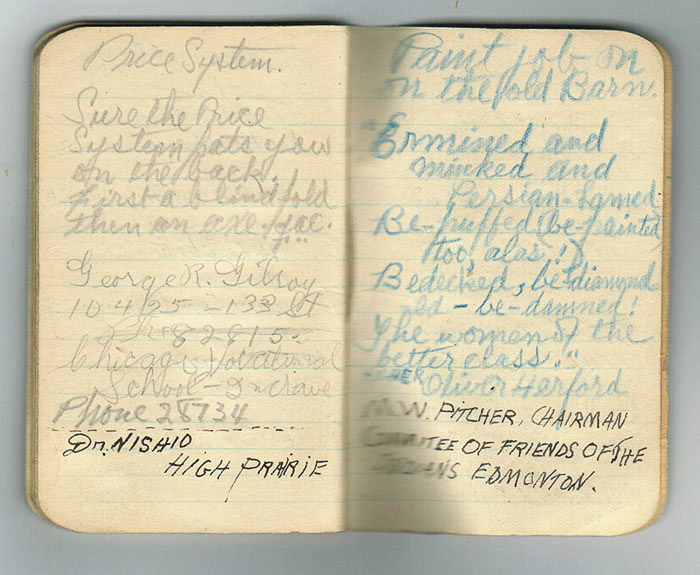 Price System.
Sure the Price
System pats you
on the back.
First a blindfold
then an axe
George R. Gilroy
10425-133 St
Ph 82815.
Chicago Vocational
School - Engrave
Phone 28734
Dr. NISHIO
HIGH PRAIRIE
Paint job on
on the old Barn.
"Ermined and
minked and
Persian-Lamed
Be-puffed (be-painted
too, alas!)
Bedecked, be-diamond
ed - be-damned!
The women of the
better class."
Oliver Herford
M.W. PITCHER, CHAIRMAN
COMMITEE OF FRIENDS OF THE
INDIANS EDMONTON.